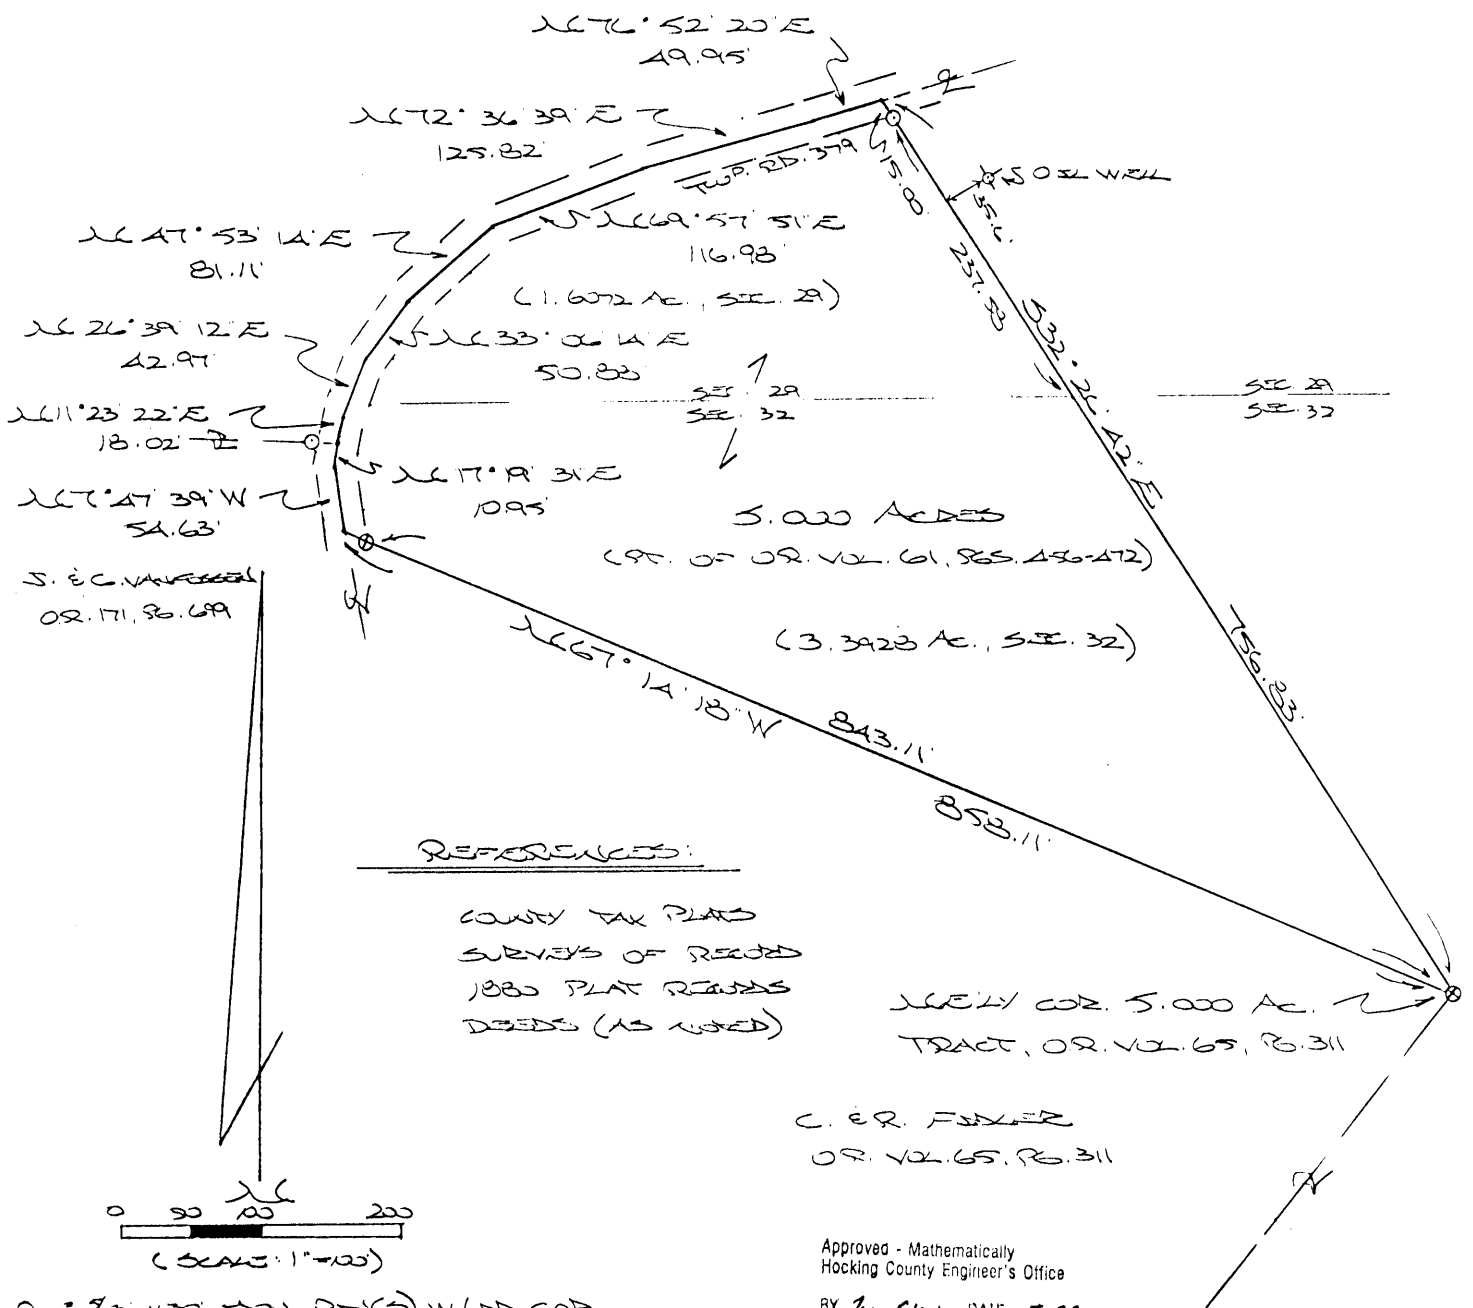 N 76° 52' 20" E
49.95'
N 72° 36' 39" E
125.82'
TWP. RD. 379
15.00'
OIL WELL
35.6'
N 47° 53' 14" E
81.11'
N 69° 57' 51" E
116.98'
237.53
(1.6072 AC., SEC. 29)
N 26° 39' 12" E
42.97'
N 33° 06' 14" E
50.83'
S 32° 26' 42" E
SEC. 29
SEC. 32
SEC. 29
SEC. 32
N 11° 23' 22" E
18.02'
N 17° 19' 31" E
10.95'
N 7° 47' 39" W
54.63'
5.000 ACRES
(PT. OF OR. VOL. 61, PGS. 456-472)
OR. 171, PG. 699
(3.3928 AC., SEC. 32)
756.83'
N 67° 14' 18" W
843.11'
858.11'
REFERENCES:
COUNTY TAX PLATS
SURVEYS OF RECORD
1880 PLAT RECORDS
DEEDS (AS NOTED)
N'ELY COR. 5.000 AC.
TRACT, O.R. VOL. 65, PG. 311
C. & R.
OR. VOL. 65, PG. 311
N
0 50 100 200
(SCALE: 1"=100')
Approved - Mathematically
Hocking County Engineer's Office
BY DATE